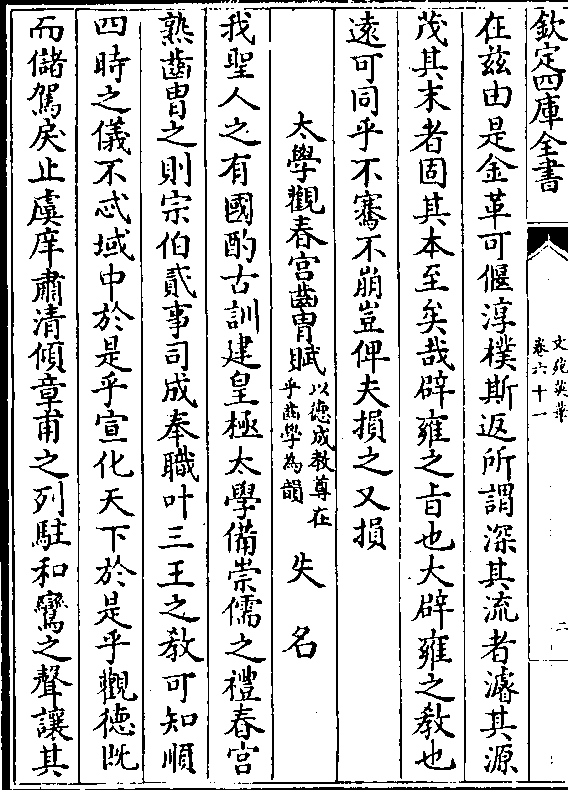 欽定四庫全書
文苑英華
卷六十一
二
在兹由是金革可偃淳樸斯返所謂深其流者濬其源
茂其末者固其本至矣哉辟雍之旨也大辟雍之教也
遠可同乎不騫不崩豈俾夫損之又損
太學觀春宮齒胄賦以德成教尊在乎齒學為韻 失名
我聖人之有國酌古訓建皇極太學備崇儒之禮春宮
熟齒胄之則宗伯貳事司成奉職叶三王之教可知順
四時之儀不忒域中於是乎宣化天下於是乎觀德既
而儲駕戾止虞庠肅清傾章甫之列駐和鸞之聲讓其